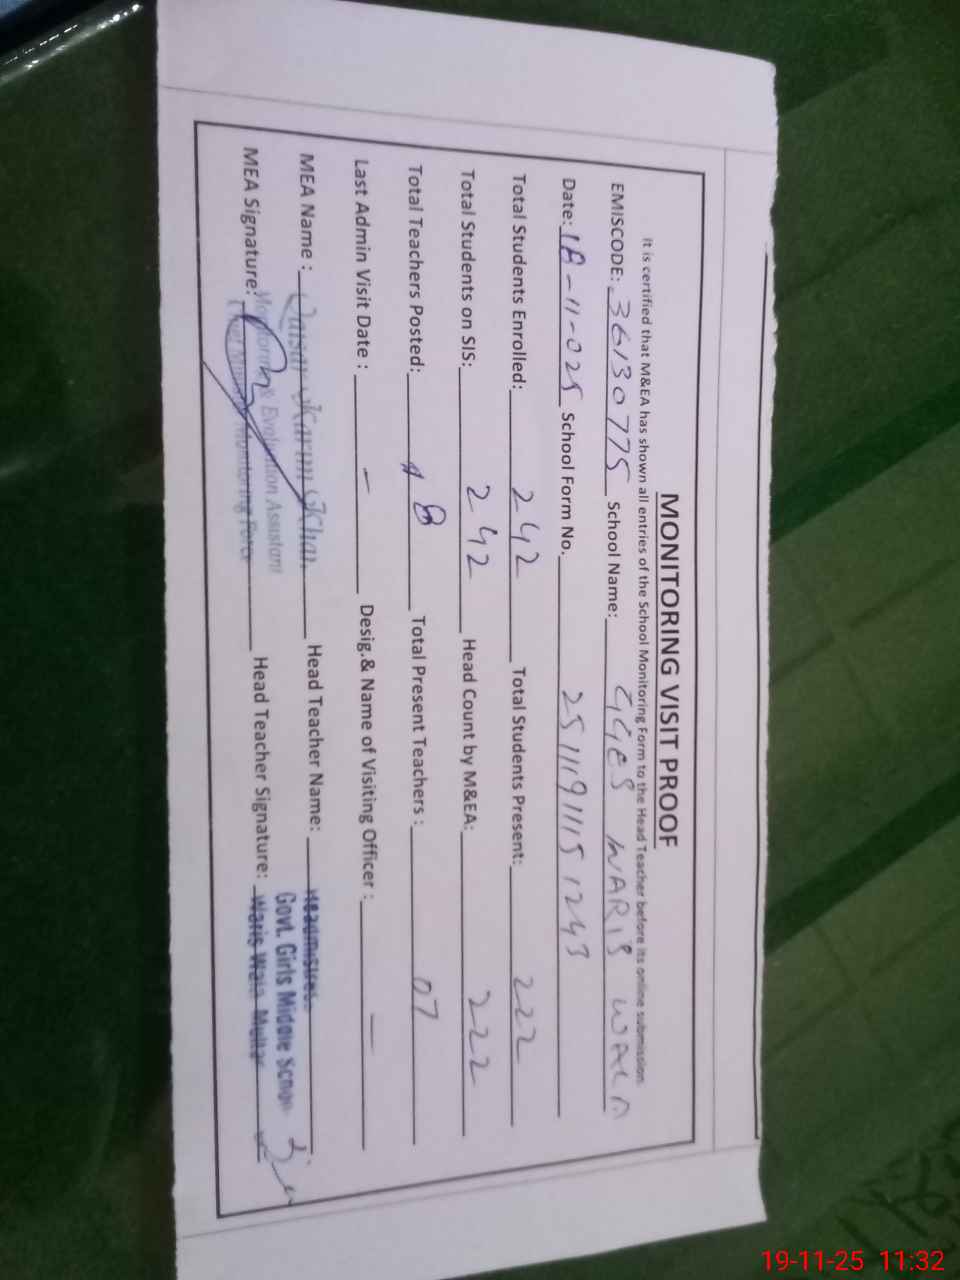 MONITORING VISIT PROOF
it is certified that M&EA has shown all entries of the School Monitoring Form to the Head Teacher before its online submission.
EMISCODE: 36130775 School Name: GGES WARIS WALA
Date: 18-11-025 School Form No. 2511191115 1243
Total Students Enrolled: 242 Total Students Present: 222
Total Students on SIS: 242 Head Count by M&EA: 222
Total Teachers Posted: 8 Total Present Teachers : 07
Last Admin Visit Date : — Desig.& Name of Visiting Officer : —
MEA Name : Qaisar Karim Khan Head Teacher Name: Headmistress
Monitoring & Evaluation Assistant Govt. Girls Middle School
MEA Signature: Chief Minister Monitoring Force Head Teacher Signature: Waris Wala Multan
19-11-25 11:32